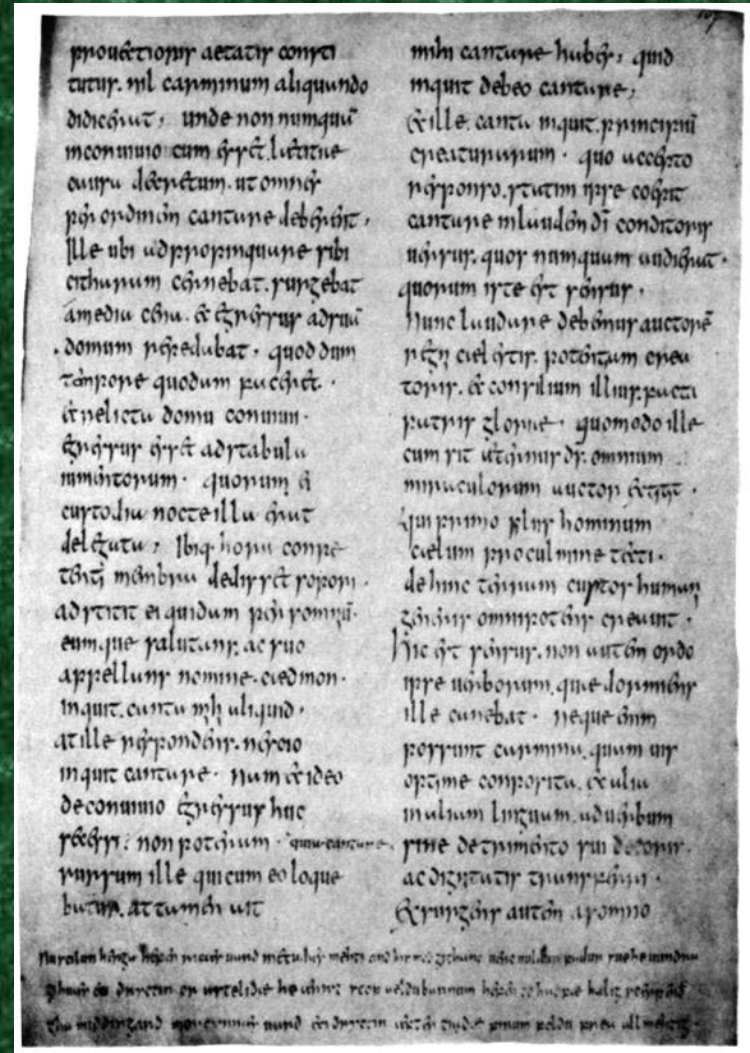 107
prouectioris aetatis consti
tutus. nil carminum aliquando
didicerat, unde non numquā
inconuiuio cum esset laetitiae
causa decretum. ut omnes
per ordinem cantare deberent,
Ille ubi adpropinquare sibi
citharam cernebat. surgebat
amedia cena. & egressus adsuā
domum repedabat. quod dum
tempore quodam faceret.
& relicta domu conuiui.
egressus esset adstabula
iumentorum. quorum ei
custodia nocte illa erat
delegata, Ibiq: hora conpe
tenti membra dedisset sopori.
adstitit ei quidam per somniū.
eumque salutans. ac suo
appellans nomine. caedmon.
inquit. canta mihi aliquid.
at ille respondens. nescio
inquit cantare. nam & ideo
deconuiuio egressus huc
secessi. non poteram. quia cantare
rursum ille qui cum eo loque
batur. attamen ait
mihi cantare habes, quid
inquit debeo cantare,
& ille. canta inquit. principiū
creaturarum. quo accepto
responso. statim ipse coepit
cantare inlaudem dī conditoris
uersus. quos numquam audierat.
quorum iste est sensus.
Nunc laudare debemus auctorē
regni caelestis. potentiam crea
toris. & consilium illius. facta
patris gloriae. quomodo ille
cum sit aeternus ds. omnium
miraculorum auctor extitit.
qui primo filiis hominum
caelum pro culmine tecti.
dehinc terram custos humani
generis omnipotens creauit.
hic est sensus. non autem ordo
ipse uerborum. quae dormiens
ille canebat. neque enim
possunt carmina. quamuis
optime conposita. ex alia
inaliam linguam. aduerbum
sine detrimento sui decoris.
ac dignitatis transferri.
Exsurgens autem asomno
Nu scilun herga hefen ricæs uard metudæs mehti and his modgithanc uerc uuldur fadur sue he uundra
gihuæs eci dryctin or astelidæ he ærist scop aeldu barnum hefen to hrofæ halig sceppend
tha middingard moncynnæs uard eci dryctin æfter tiadæ firum foldu frea allmehtig.